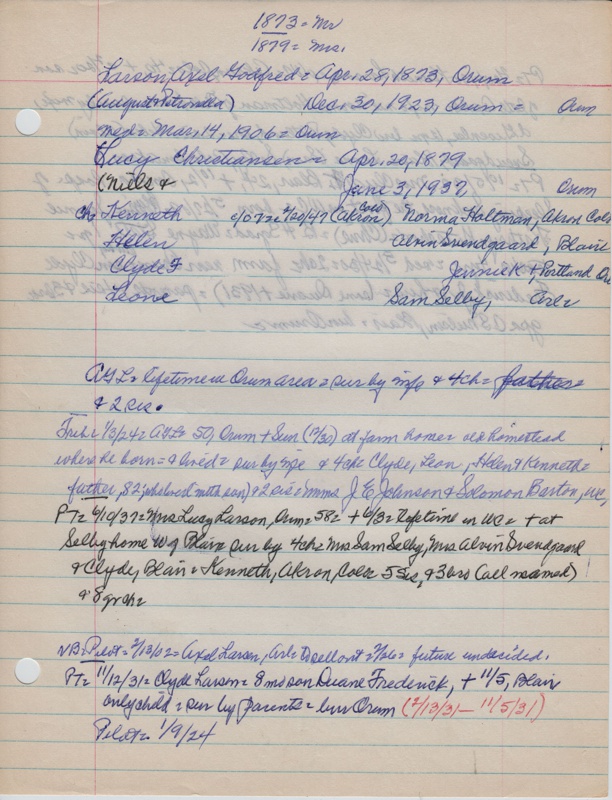 1873 = Mr
1879 = Mrs.
Larson, Axel Godfred = Apr. 28, 1873, Orum
(August & Petronella) Dec. 30, 1923, Orum = Orum
med = Mar, 14, 1906 = Orum
Lucy Christiansen = Apr. 20, 1879
(Niels & June 3, 1937, Orum
ch: Kenneth c/o 72 = 4/20/47 (Akron, Colo) Norma Haltman, Akron Colo
Helen Alvin Svendgaard, Blair
Clyde F Jennie K + Portland Ore
Leone Sam Selby, Arl =
AGL = lifetime in Orum area = sur by wife & 4 ch = father
& 2 sis.
Trib = 1/3/24 = AGL = 50, Orum + Sun (12/30) at farm home = old homestead
where he born = & lived = sur by wife & 4 ch = Clyde, Leon, Helen & Kenneth =
father, 82, who lived with son) & 2 sis = Mmes J.E. Johnson & Solomon Barton, WC,
PT = 6/10/37 = Mrs Lucy Larson, Orum = 58 = + 6/3 = lifetime in WC = + at
Selby home W of Blair sur by 4 ch = Mrs Sam Selby, Mrs Alvin Svendgaard
& Clyde, Blair & Kenneth, Akron, Colo = 5 sis, & 3 bros (all named)
& 8 gr ch =
NB = Pilot = 2/13/02 = Axel Larsen, Arl = = 2/26 = future undecided.
PT = 11/12/31 = Clyde Larson = 8 mo son Duane Frederick, + 11/5, Blair
only child = sur by parents = bur Orum (2/13/31 - 11/5/31)
Pilot = 1/9/24